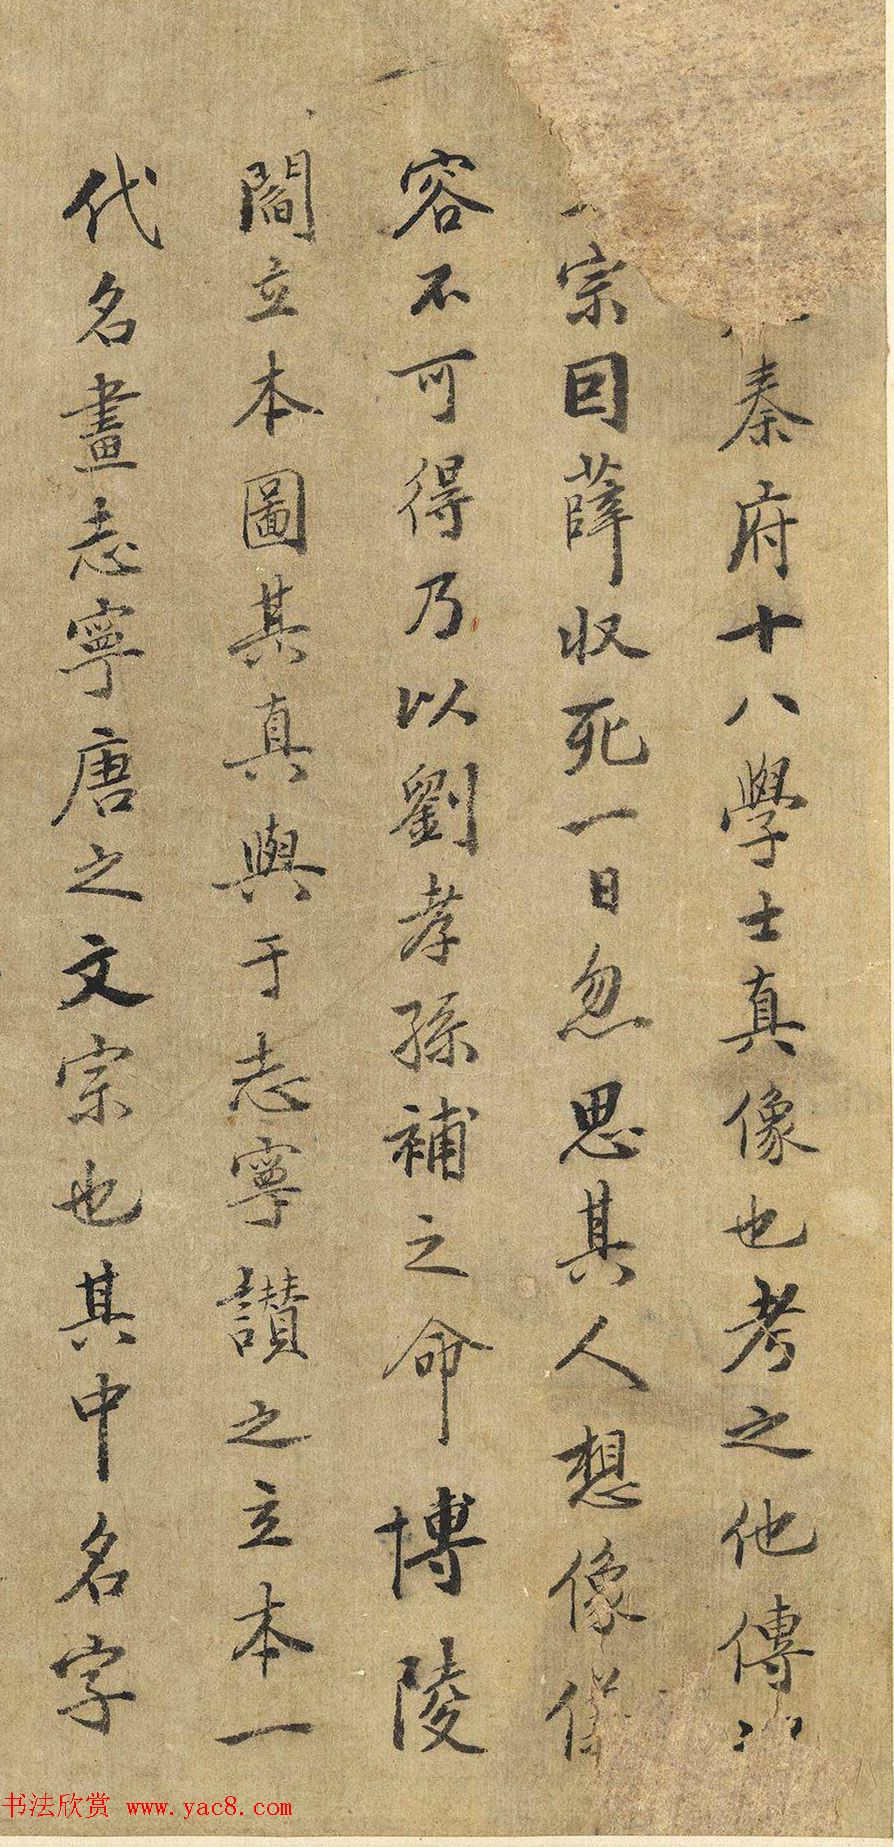 秦府十八學士真像也考之他傳
宗因薛收死一日忽思其人想像儀
容不可得乃以劉孝孫補之命博陵
閻立本圖其真與于志寧讃之立本一
代名畫志寧唐之文宗也其中名字
书法欣赏 www.yac8.com